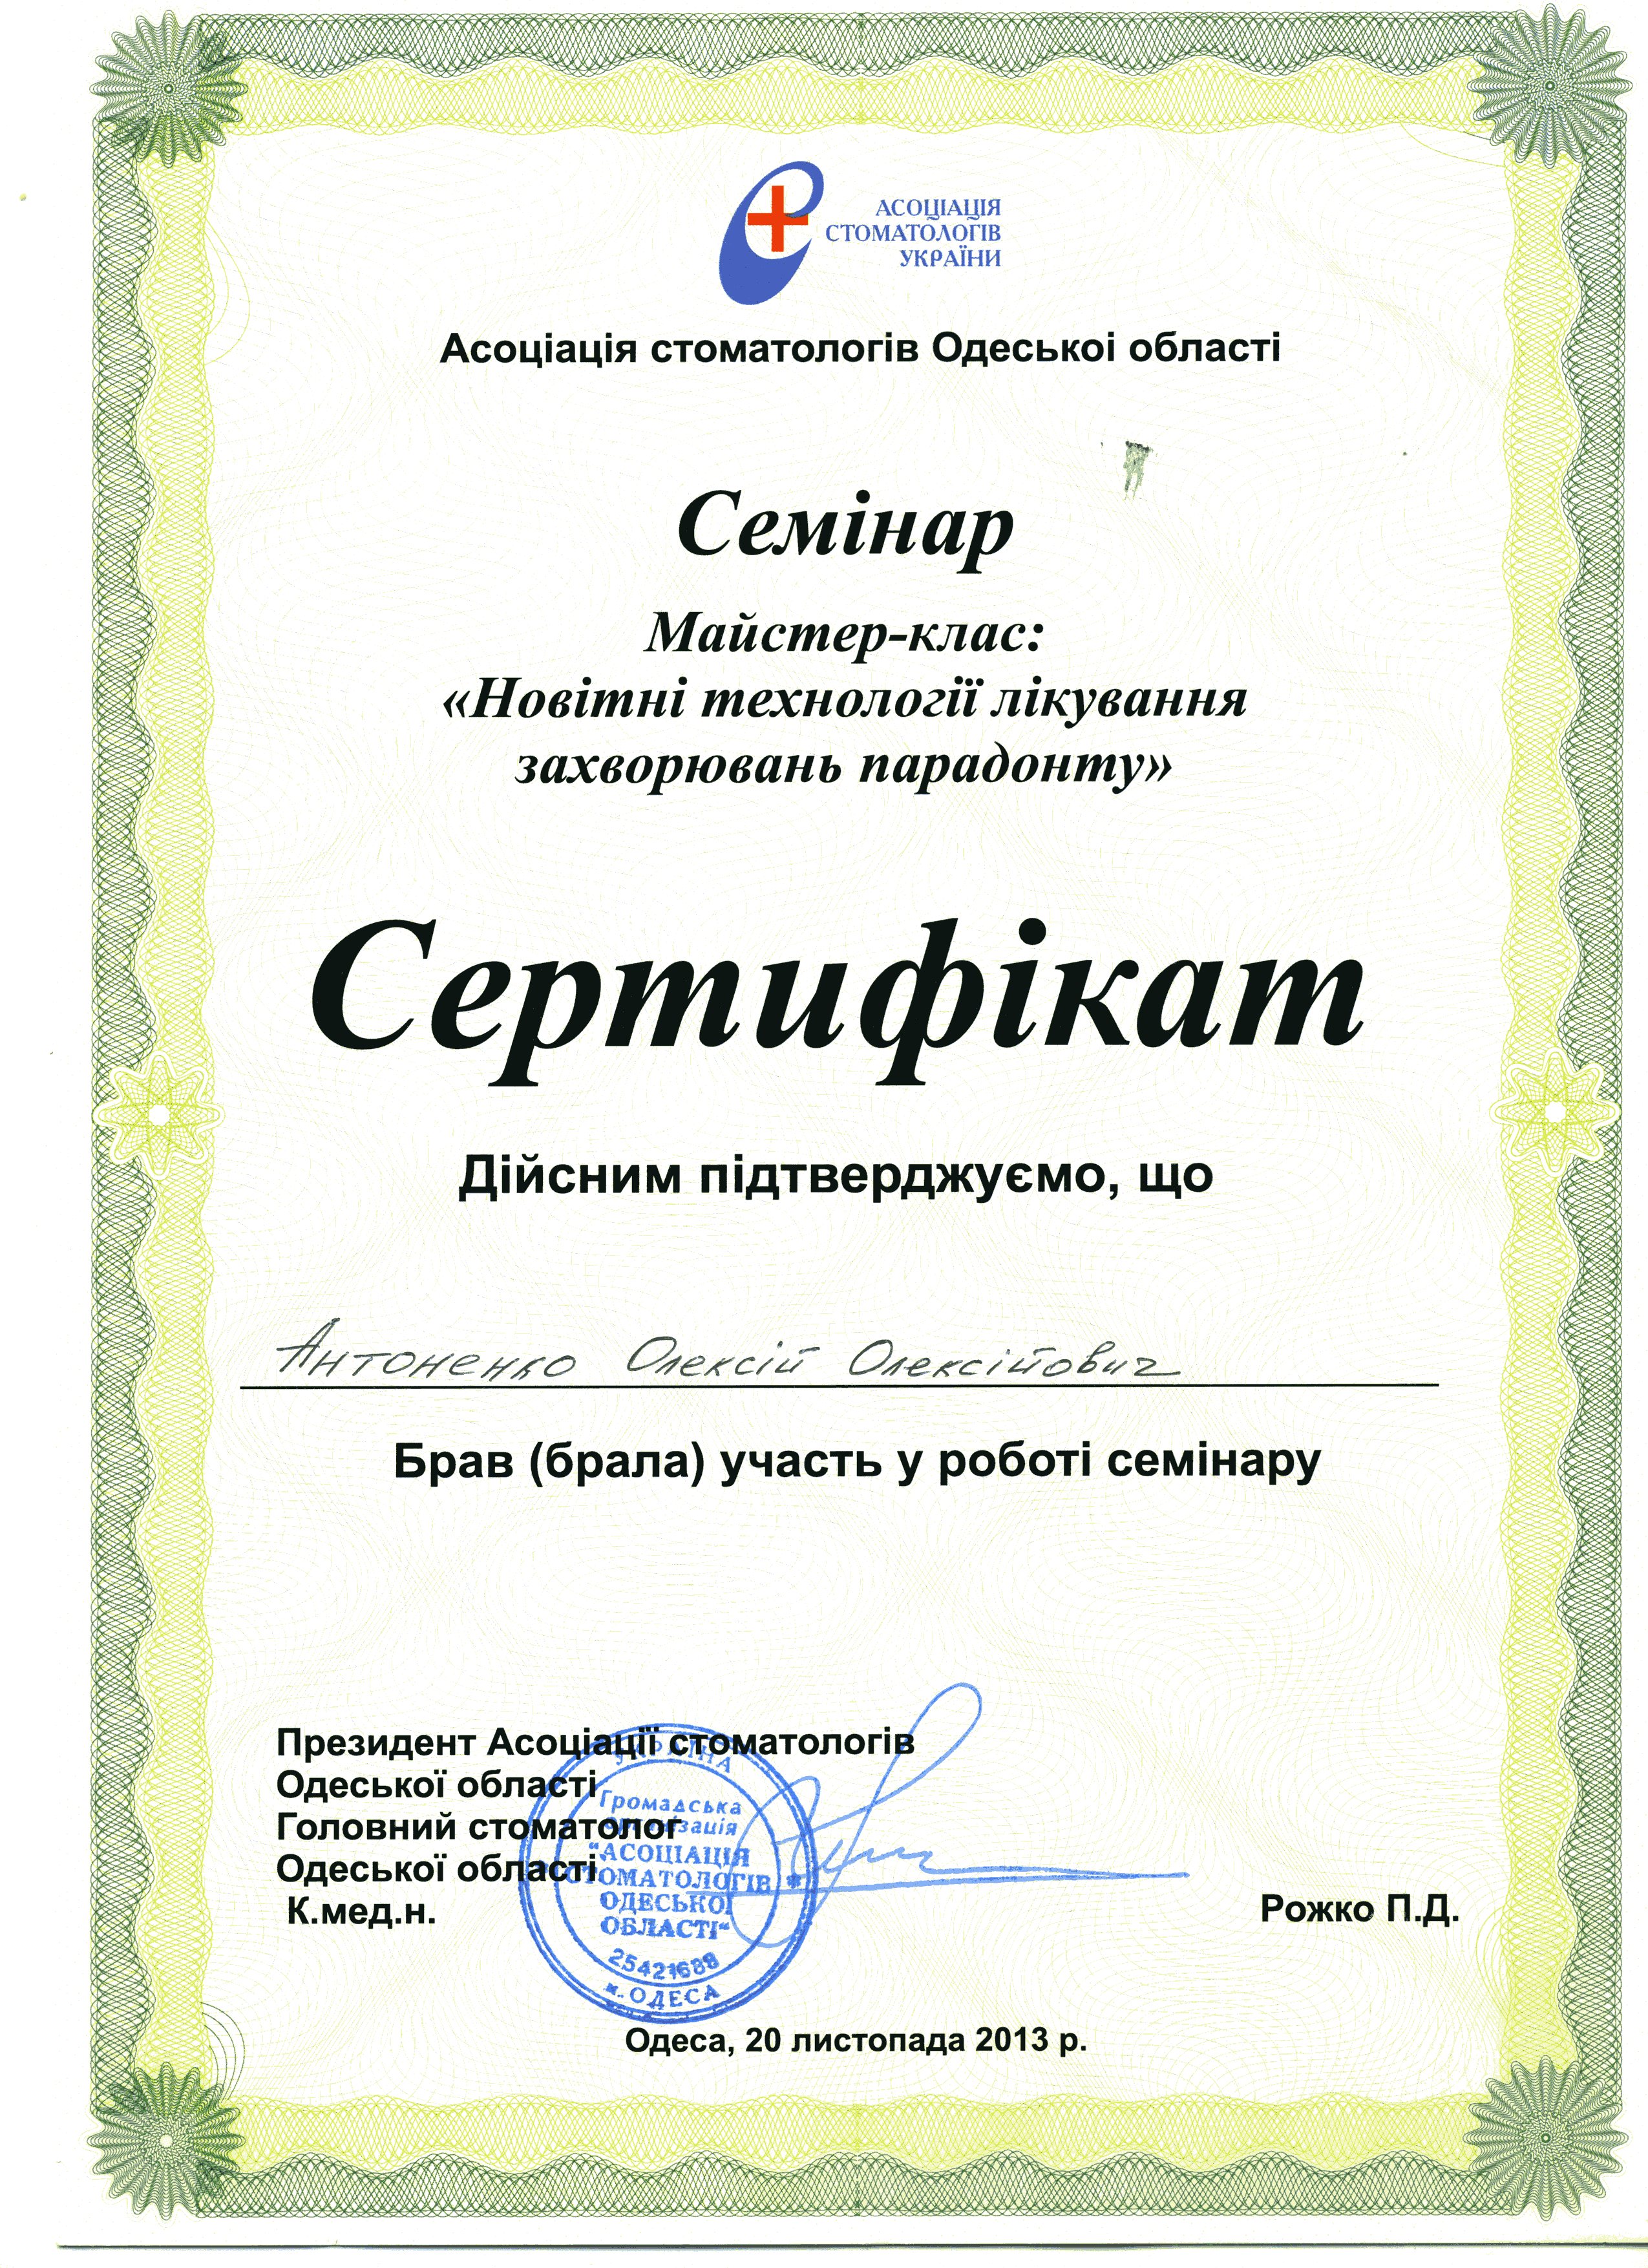 АСОЦІАЦІЯ
СТОМАТОЛОГІВ
УКРАЇНИ
Асоціація стоматологів Одеськоі області
Семінар
Майстер-клас:
«Новітні технології лікування
захворювань парадонту»
Сертифікат
Дійсним підтверджуємо, що
Антоненко Олексій Олексійович
Брав (брала) участь у роботі семінару
Президент Асоціації стоматологів
Одеської області
Головний стоматолог
Одеської області
К.мед.н.
Рожко П.Д.
УКРАЇНА
Громадська
організація
"АСОЦІАЦІЯ
СТОМАТОЛОГІВ
ОДЕСЬКОЇ
ОБЛАСТІ"
25421688
м. ОДЕСА
Одеса, 20 листопада 2013 р.